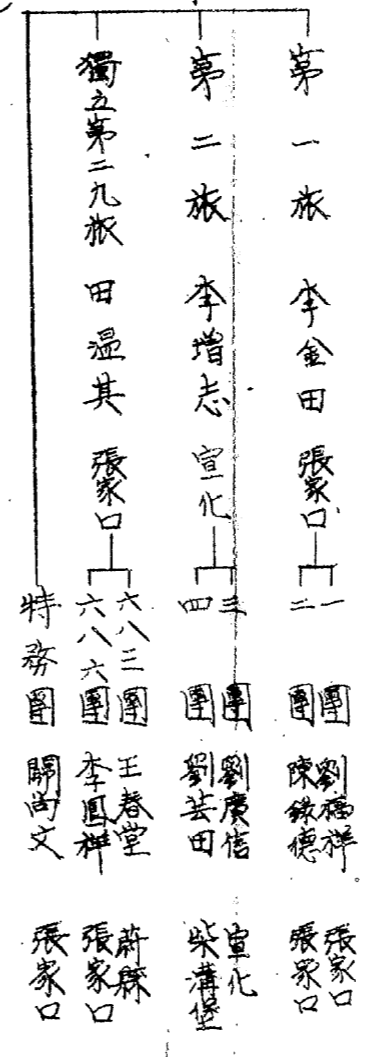 第一旅 李金田 張家口
一團 劉福祥 張家口
二團 陳錄德 張家口
第二旅 李增志 宣化
三團 劉廣信 宣化
四團 劉芸田 柴溝堡
獨立第二九旅 田溫其 張家口
六八三團 王春堂 蔚縣
六八六團 李鳳祥 張家口
特務團 關尚文 張家口